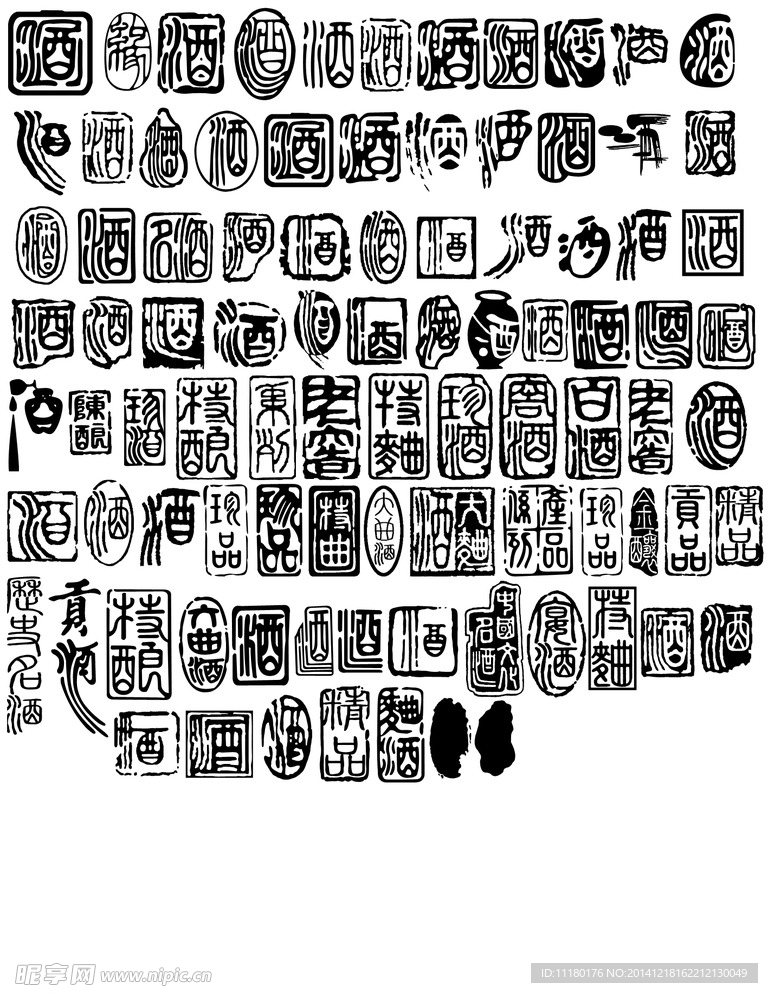 酒 酒 酒 酒 酒 酒 酒 酒 酒 酒
酒 酒 酒 酒 酒 酒 酒 酒 酒 酒
酒 酒 名酒 酒 酒 酒 酒 酒 酒 酒 酒
酒 酒 酒 酒 酒 酒 酒 酒 酒 酒 酒 酒
酒 陳釀 珍酒 特釀 老窖 特麯 珍酒 窖酒 白酒 老窖 酒
酒 酒 酒 珍品 珍品 特曲 大曲酒 大麯酒 系列 產品 珍品 金釀 貢品 精品
歷史名酒 貢酒 特釀 大曲酒 酒 酒 酒 酒 中國文化名酒 宴酒 特麯 酒 酒
酒 酒 酒 精品 麯酒
昵享网 www.nipic.cn
ID:11180176 NO:20141218162212130049